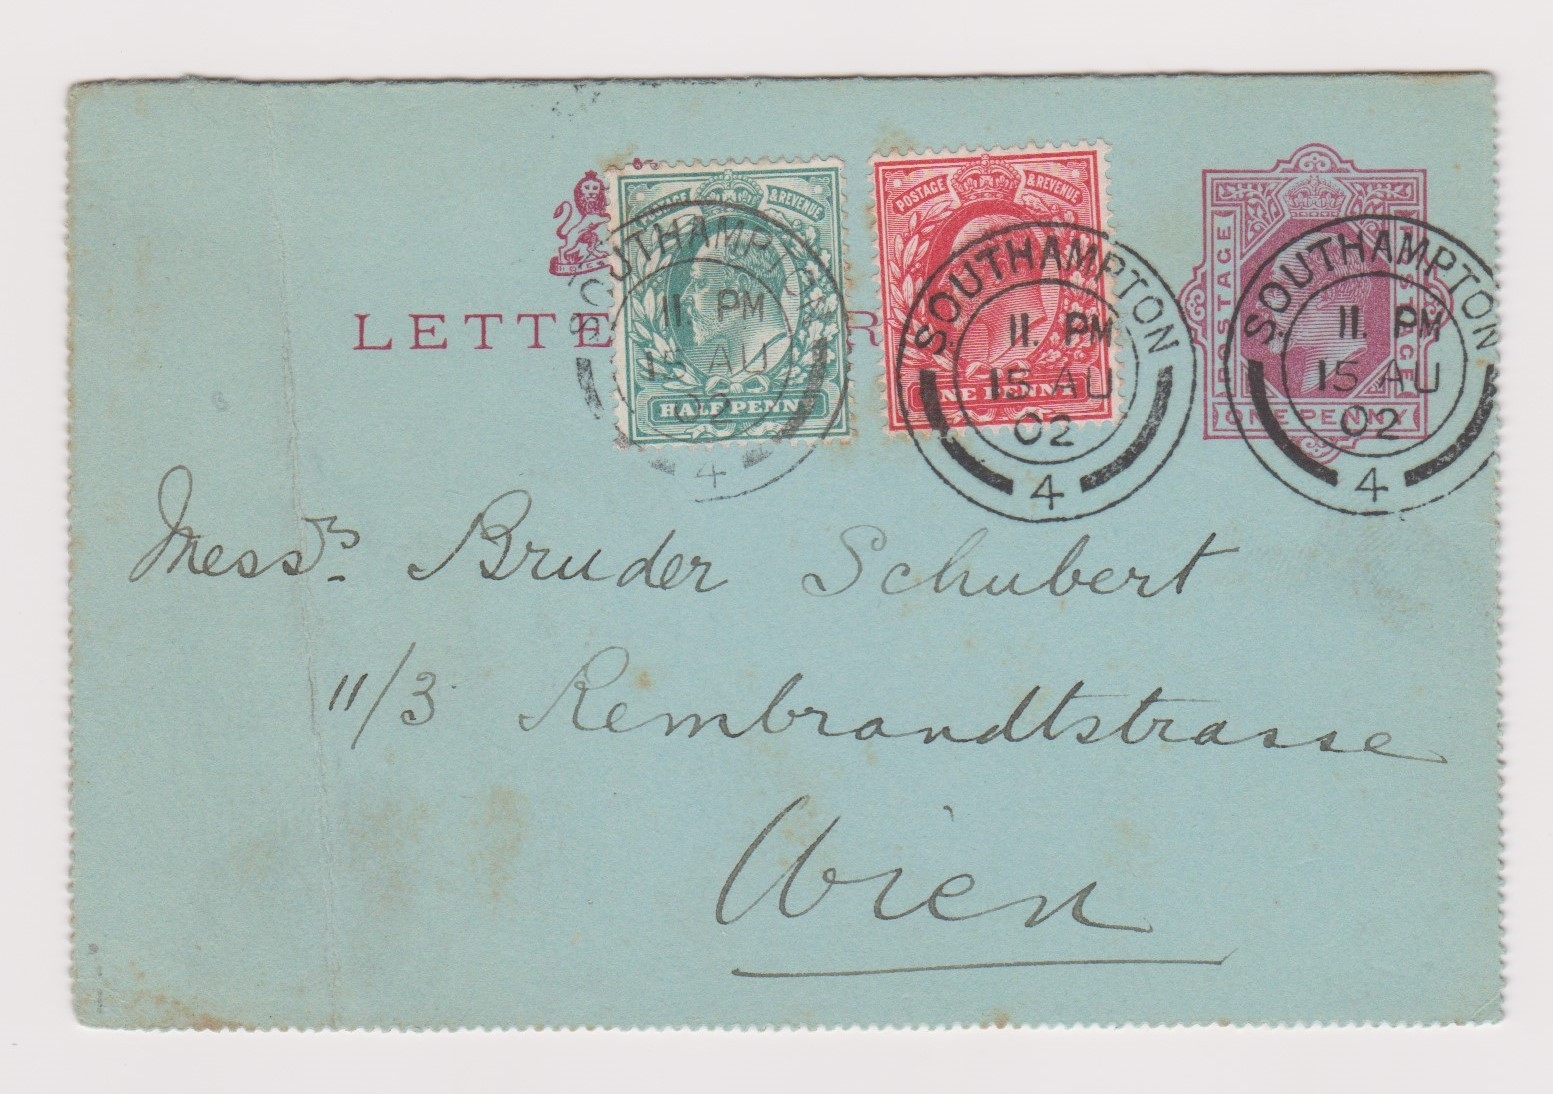 LETTE R
POSTAGE & REVENUE
HALFPENNY
SOUTHAMPTON
11. PM
15 AU
02
4
POSTAGE & REVENUE
ONE PENNY
SOUTHAMPTON
11. PM
15 AU
02
4
POSTAGE POSTAGE
ONE PENNY
SOUTHAMPTON
11. PM
15 AU
02
4
Messrs Bruder Schubert
11/3 Rembrandtstrasse
Wien